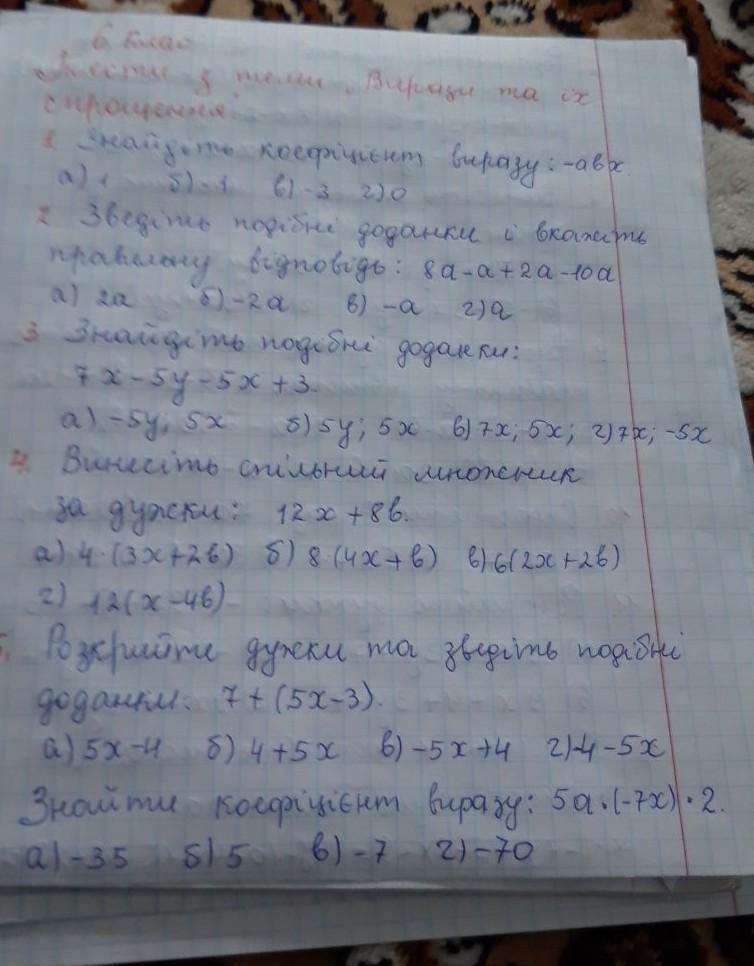 6 клас
Тести з теми „Вирази та їх
спрощення"
1. Знайдіть коефіцієнт виразу: -авх.
а) 1 б) -1 в) -3 г) 0
2 Зведіть подібні доданки і вкажіть
правильну відповідь: 8а-а+2а-10а
а) 2а б) -2а в) -а г) а
3 Знайдіть подібні доданки:
7х-5у-5х+3.
а) -5у; 5х б) 5у; 5х в) 7х; 5х; г) 7х; -5х
4. Винесіть спільний множник
за дужки: 12х+8в.
а) 4·(3х+2в) б) 8·(4х+в) в) 6(2х+2в)
г) 12(х-4в)
5. Розкрийте дужки та зведіть подібні
доданки: 7+(5х-3).
а) 5х-4 б) 4+5х в) -5х+4 г) -4-5х
Знайти коефіцієнт виразу: 5а·(-7х)·2.
а) -35 б) 5 в) -7 г) -70